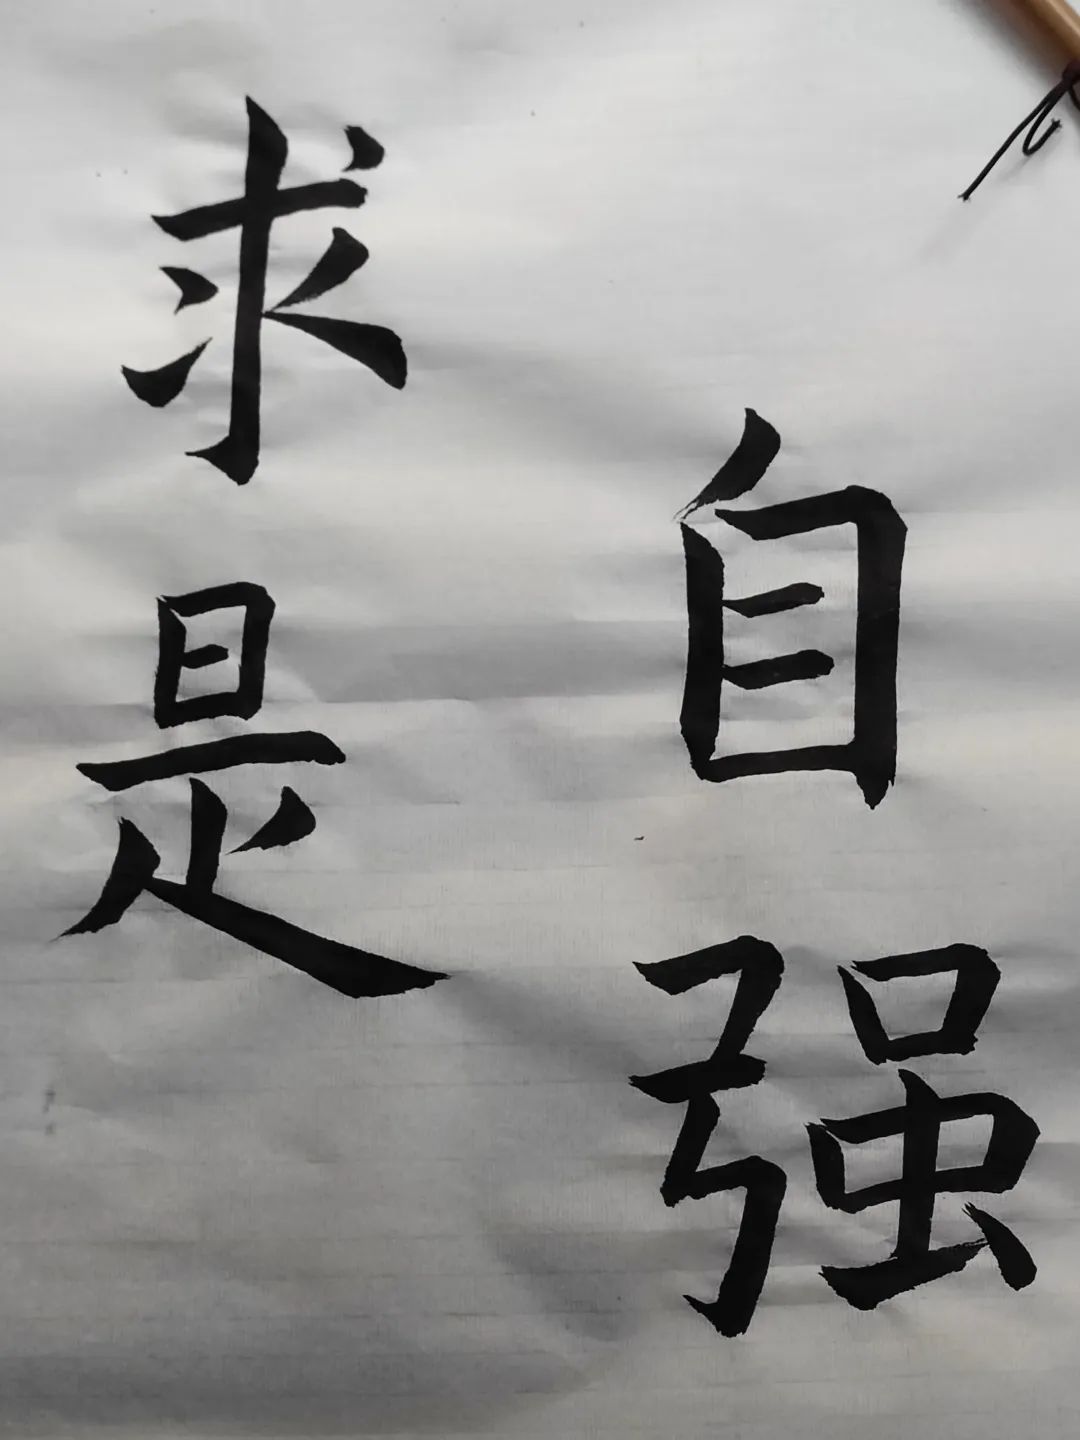 自强
求是